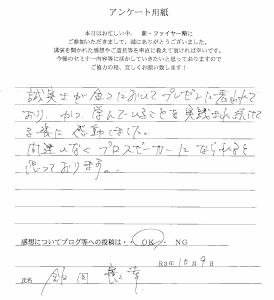 アンケート用紙
本日はお忙しい中、新・ファイヤー塾に
ご参加いただきまして、誠にありがとうございました。
講演を聞かれた感想やご意見等を率直に教えて頂ければ幸いです。
今後のセミナー内容等に活かしていきたいと思っておりますので
ご協力の程、宜しくお願い致します！
誠実さが全てにおいてプレゼンに表われて
おり、かつ、学んでいることを実践され続けて
る姿に感動しました。
間違いなくプロスピーカーになられると
思っております。
感想についてブログ等への投稿は・ OK ・ NG
R3年10月9日
氏名